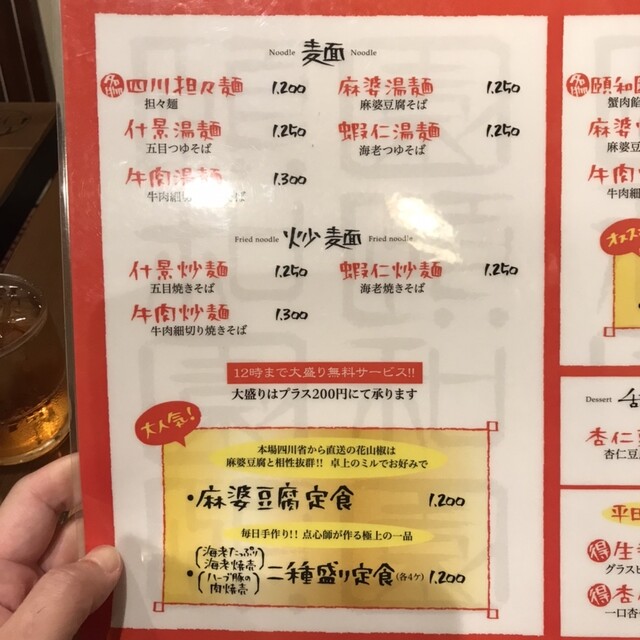 Noodle 麺 Noodle
名物 四川担々麺 1.200
担々麺
麻婆湯麺 1.250
麻婆豆腐そば
什景湯麺 1.250
五目つゆそば
蝦仁湯麺 1.250
海老つゆそば
牛肉湯麺 1.300
牛肉細切りつゆそば
Fried noodle 炒麺 Fried noodle
什景炒麺 1.250
五目焼きそば
蝦仁炒麺 1.250
海老焼きそば
牛肉炒麺 1.300
牛肉細切り焼きそば
12時まで大盛り無料サービス!!
大盛りはプラス200円にて承ります
大人気!
本場四川省から直送の花山椒は
麻婆豆腐と相性抜群!! 卓上のミルでお好みで
・麻婆豆腐定食 1.200
毎日手作り!! 点心師が作る極上の一品
(海老たっぷり海老焼売)
(ハーブ豚の肉焼売)
・二種盛り定食(各4ケ) 1.200
名物 頤和園
蟹肉餡
麻婆
麻婆豆
牛肉
牛肉細
オスス
Dessert
杏仁豆
杏仁豆腐
平日
得 生
グラスビ
得 杏
一口杏